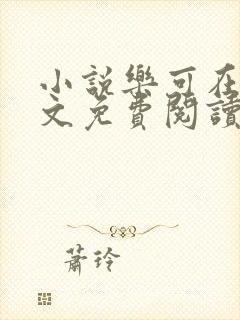 小說樂可在
文免費閱讀
蕭玲